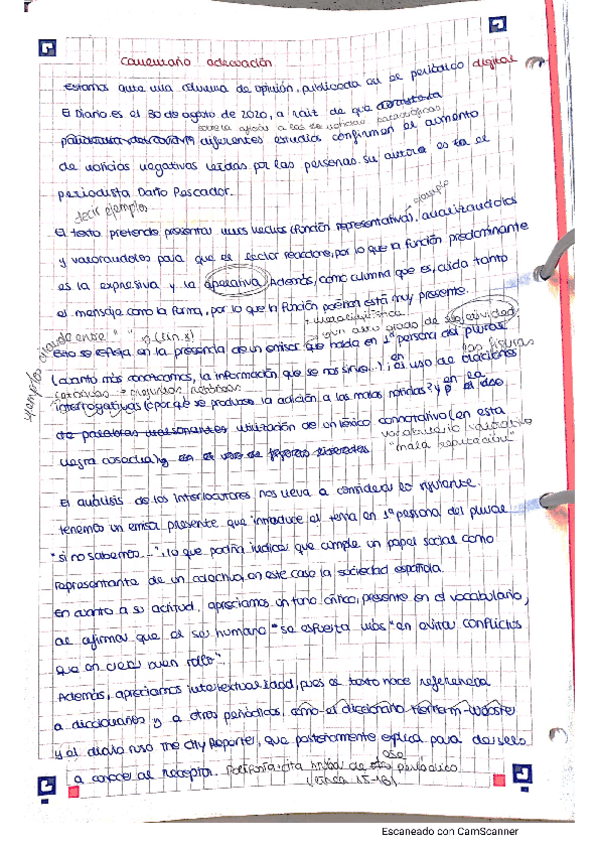 Comentario adecuación
Estamos ante una columna de opinión, publicada en el periódico digital
El Diario.es el 30 de agosto de 2020, a raíz de que
diferentes estudios confirmen el aumento
de noticias negativas leídas por las personas. Su autora es la el
periodista Darío Pescador.
decir ejemplos
ejemplo
El texto pretende presentar unos hechos (función representativa), analizándolos
y valorándolos para que el lector reaccione, por lo que la función predominante
es la expresiva y la apelativa. Además, como columna que es, cuida tanto
el mensaje como la forma, por lo que la función poética está muy presente.
gran grado de subjetividad
ejemplos citando entre " " n.(lín.x)
Esto se refleja en la presencia de un emisor que habla en 1ª persona del plural
(cuanto más conozcamos, la información que se nos sirve...); en el uso de oraciones
las figuras
interrogativas (¿por qué se produce la adicción a las malas noticias? y en la
utilización de un léxico connotativo (en esta
vocabulario valorativo
negra cosecha)
"mala reputación"
El análisis de los interlocutores nos lleva a considerar lo siguiente.
tenemos un emisor presente que introduce el tema en 1ª persona del plural
"si no sabemos...", lo que podría indicar que cumple un papel social como
representante de un colectivo, en este caso la sociedad española.
En cuanto a su actitud, apreciamos un tono crítico, presente en el vocabulario,
al afirmar que el ser humano "se esfuerza más" en evitar conflictos
que en crear buen rollo".
Además, apreciamos intertextualidad, pues el texto hace referencia
a diccionarios y a otros periódicos, como el diccionario Merriam-Webster
y al diario ruso The City Reporter, que posteriormente explica para dárselo
a conocer al receptor. Polifonía: cita de ese periódico
(línea 15-18)
Escaneado con CamScanner